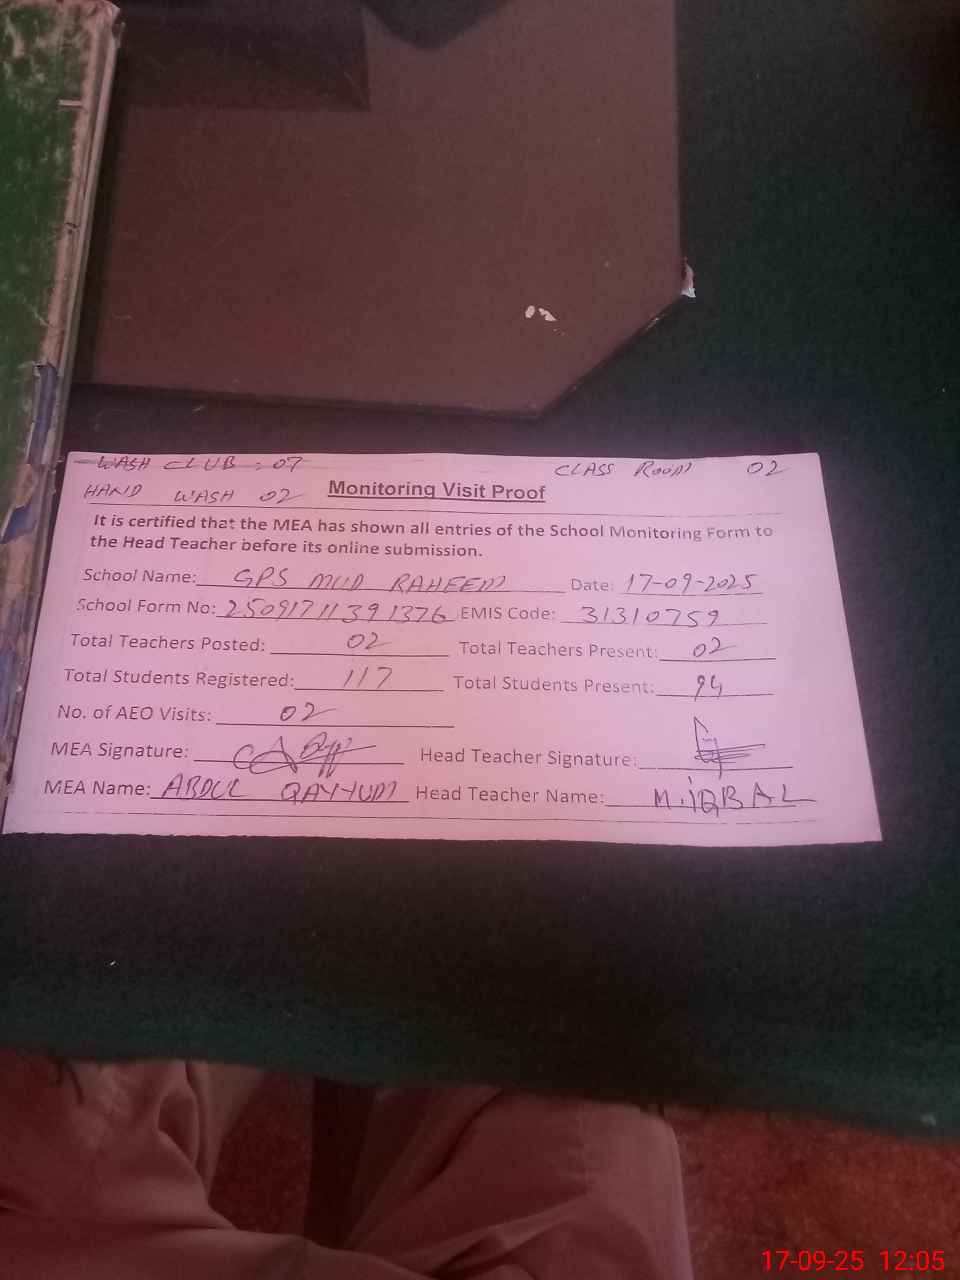 WASH CLUB : 07 CLASS ROOM 02
HAND WASH 02 Monitoring Visit Proof
It is certified that the MEA has shown all entries of the School Monitoring Form to
the Head Teacher before its online submission.
School Name: GPS MUD RAHEEM Date: 17-09-2025
School Form No: 25091711391376 EMIS Code: 31310759
Total Teachers Posted: 02 Total Teachers Present: 02
Total Students Registered: 117 Total Students Present: 94
No. of AEO Visits: 02
MEA Signature: Head Teacher Signature:
MEA Name: ABDUL QAYYUM Head Teacher Name: M. IQBAL
17-09-25 12:05